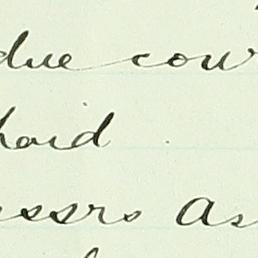 due cour
paid
essrs As